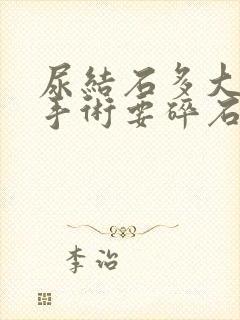 尿結石多大
手術要碎石
李治